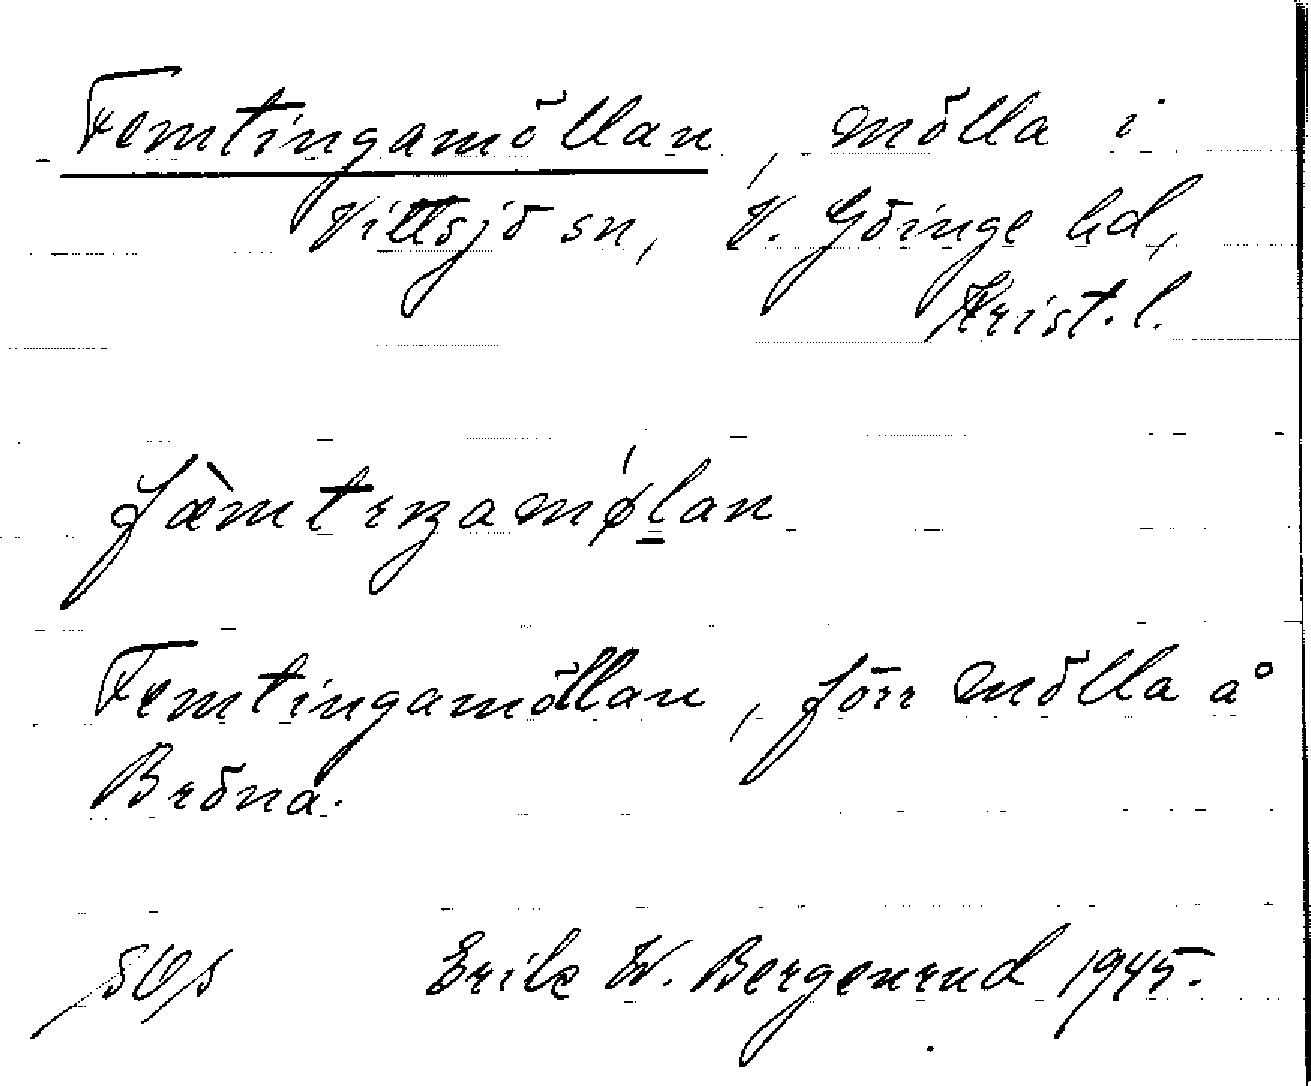 Femtingamöllan, mölla i
Vittsjö sn, V. Göinge hd,
Krist. l.
Femtingamöllan, förr mölla å
Bröna.
Erik W. Bergenrud 1945.